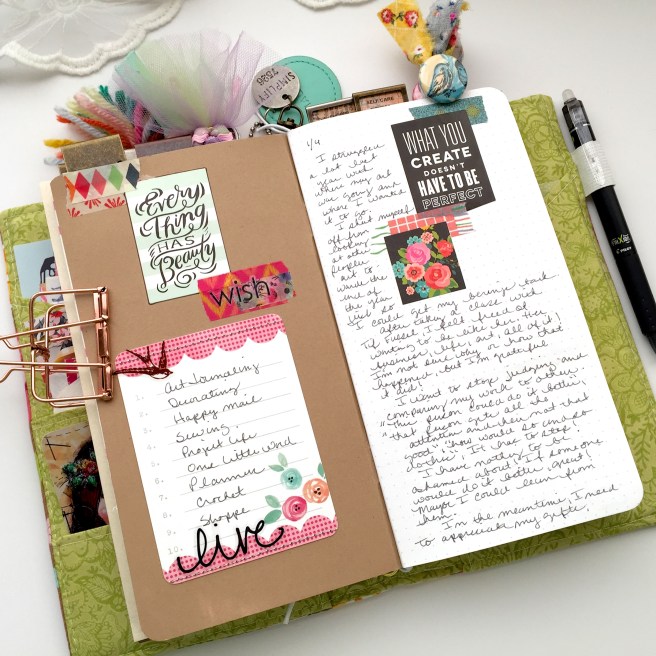 SIMPLIFY
7526
SELF CARE
EVERY
THING
HAS
Beauty
wish
Art Journaling
Decorating
Happy Mail
Sewing
Project Life
One Little Word
Planner
Crochet
Shoppe
10.
live
1/4
WHAT YOU
CREATE
DOESN'T
HAVE TO BE
PERFECT
I struggled
a lot last
year with
where my art
was going and
where I wanted
it to go.
I shut myself
off from
looking
at other
people's
art to-
wards the
end of
the year
just so
I could get my bearings back
After taking a class with
Tif Fussel I felt freed of
wanting to be like her. Her
business, life, art, all of it.
I'm not sure why or how that
happened, but I'm grateful
it did!
I want to stop judging and
comparing my work to others.
"this person could do it better,"
"that person gets all the
attention and I'm not that
good" "how would so and so
do this"; It has to stop!
I have nothing to be
ashamed about! If someone
would do it better, great!
Maybe I could learn from
them.
I'm the meantime, I need
to appreciate my gifts.
PILOT